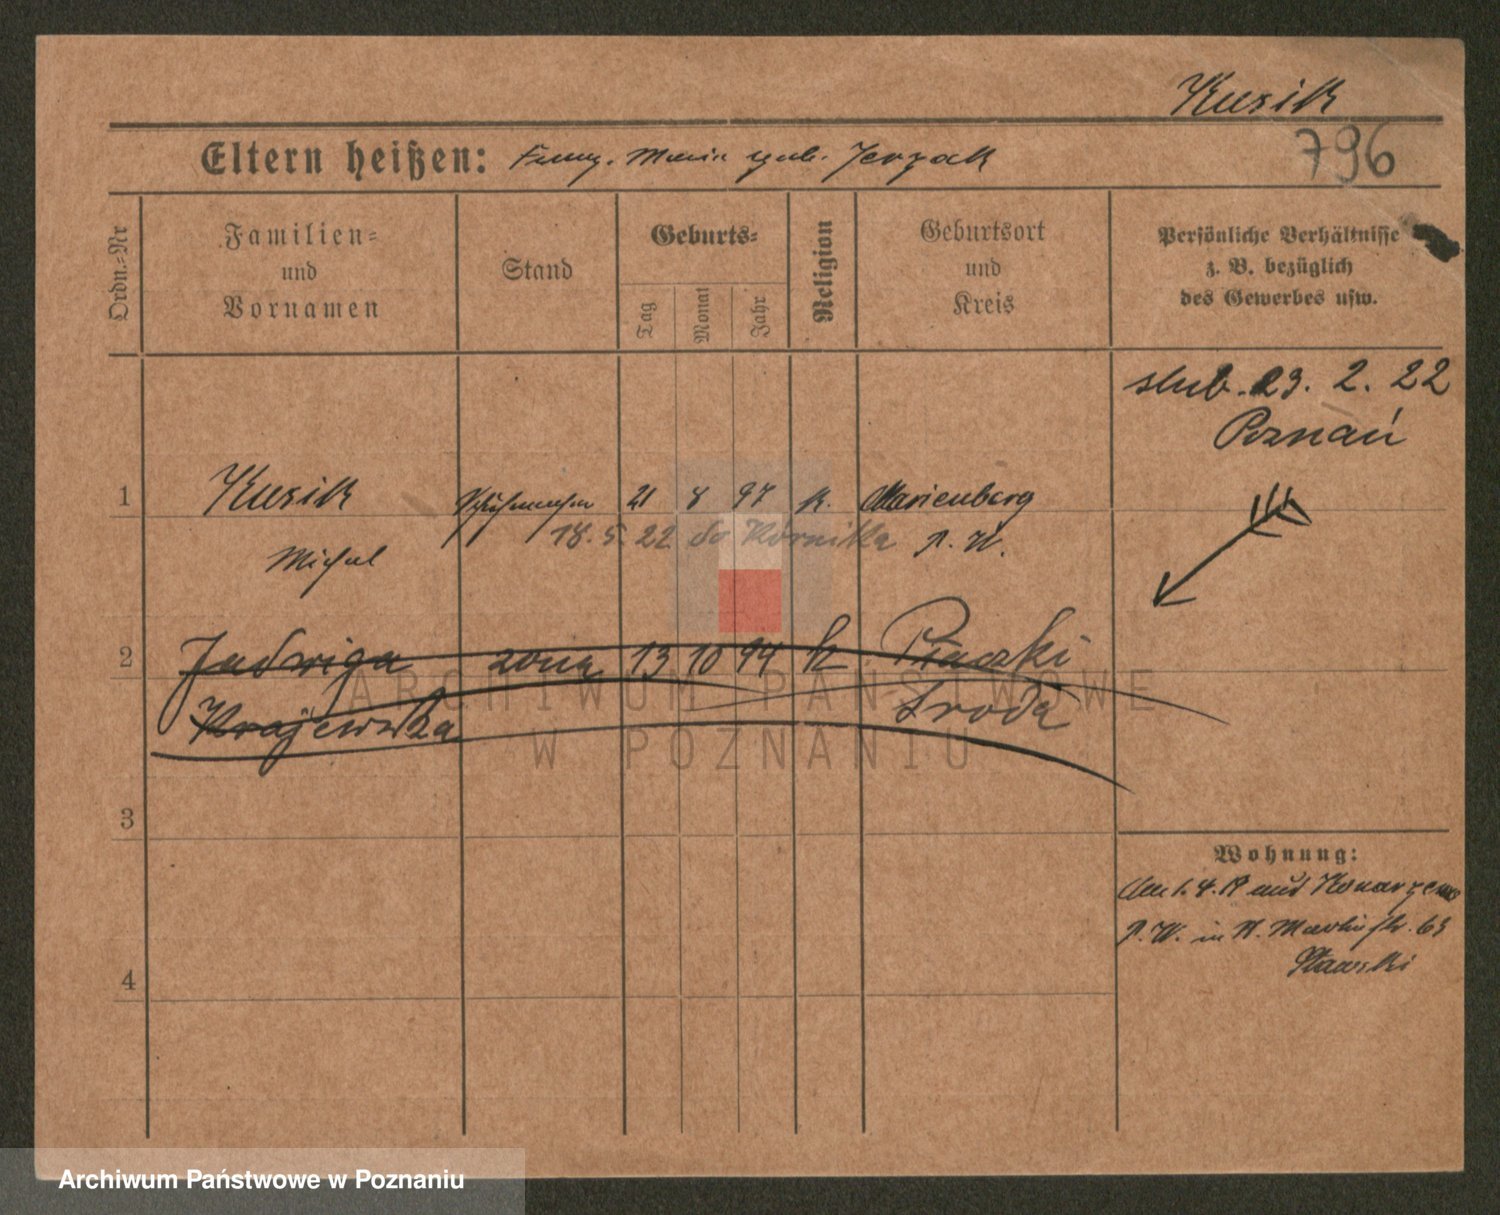 Kusik
Eltern heißen: Franz. Maria geb. Jerzak
796
Ordn.=Nr
Familien=
und
Vornamen
Stand
Geburts=
Tag
Monat
Jahr
Religion
Geburtsort
und
Kreis
Persönliche Verhältnisse
z. B. bezüglich
des Gewerbes usw.
slub. 23. 2. 22
Poznań
1 Kusik 21 8 97 k. Marienberg
18. 5. 22 do Kórnika P. W.
Michal
2 Jadwiga zona 13 10 94 k
Krajewska Sroda
3
Wohnung:
P. W. in
4
ARCHIWUM PAŃSTWOWE
W POZNANIU
Archiwum Państwowe w Poznaniu